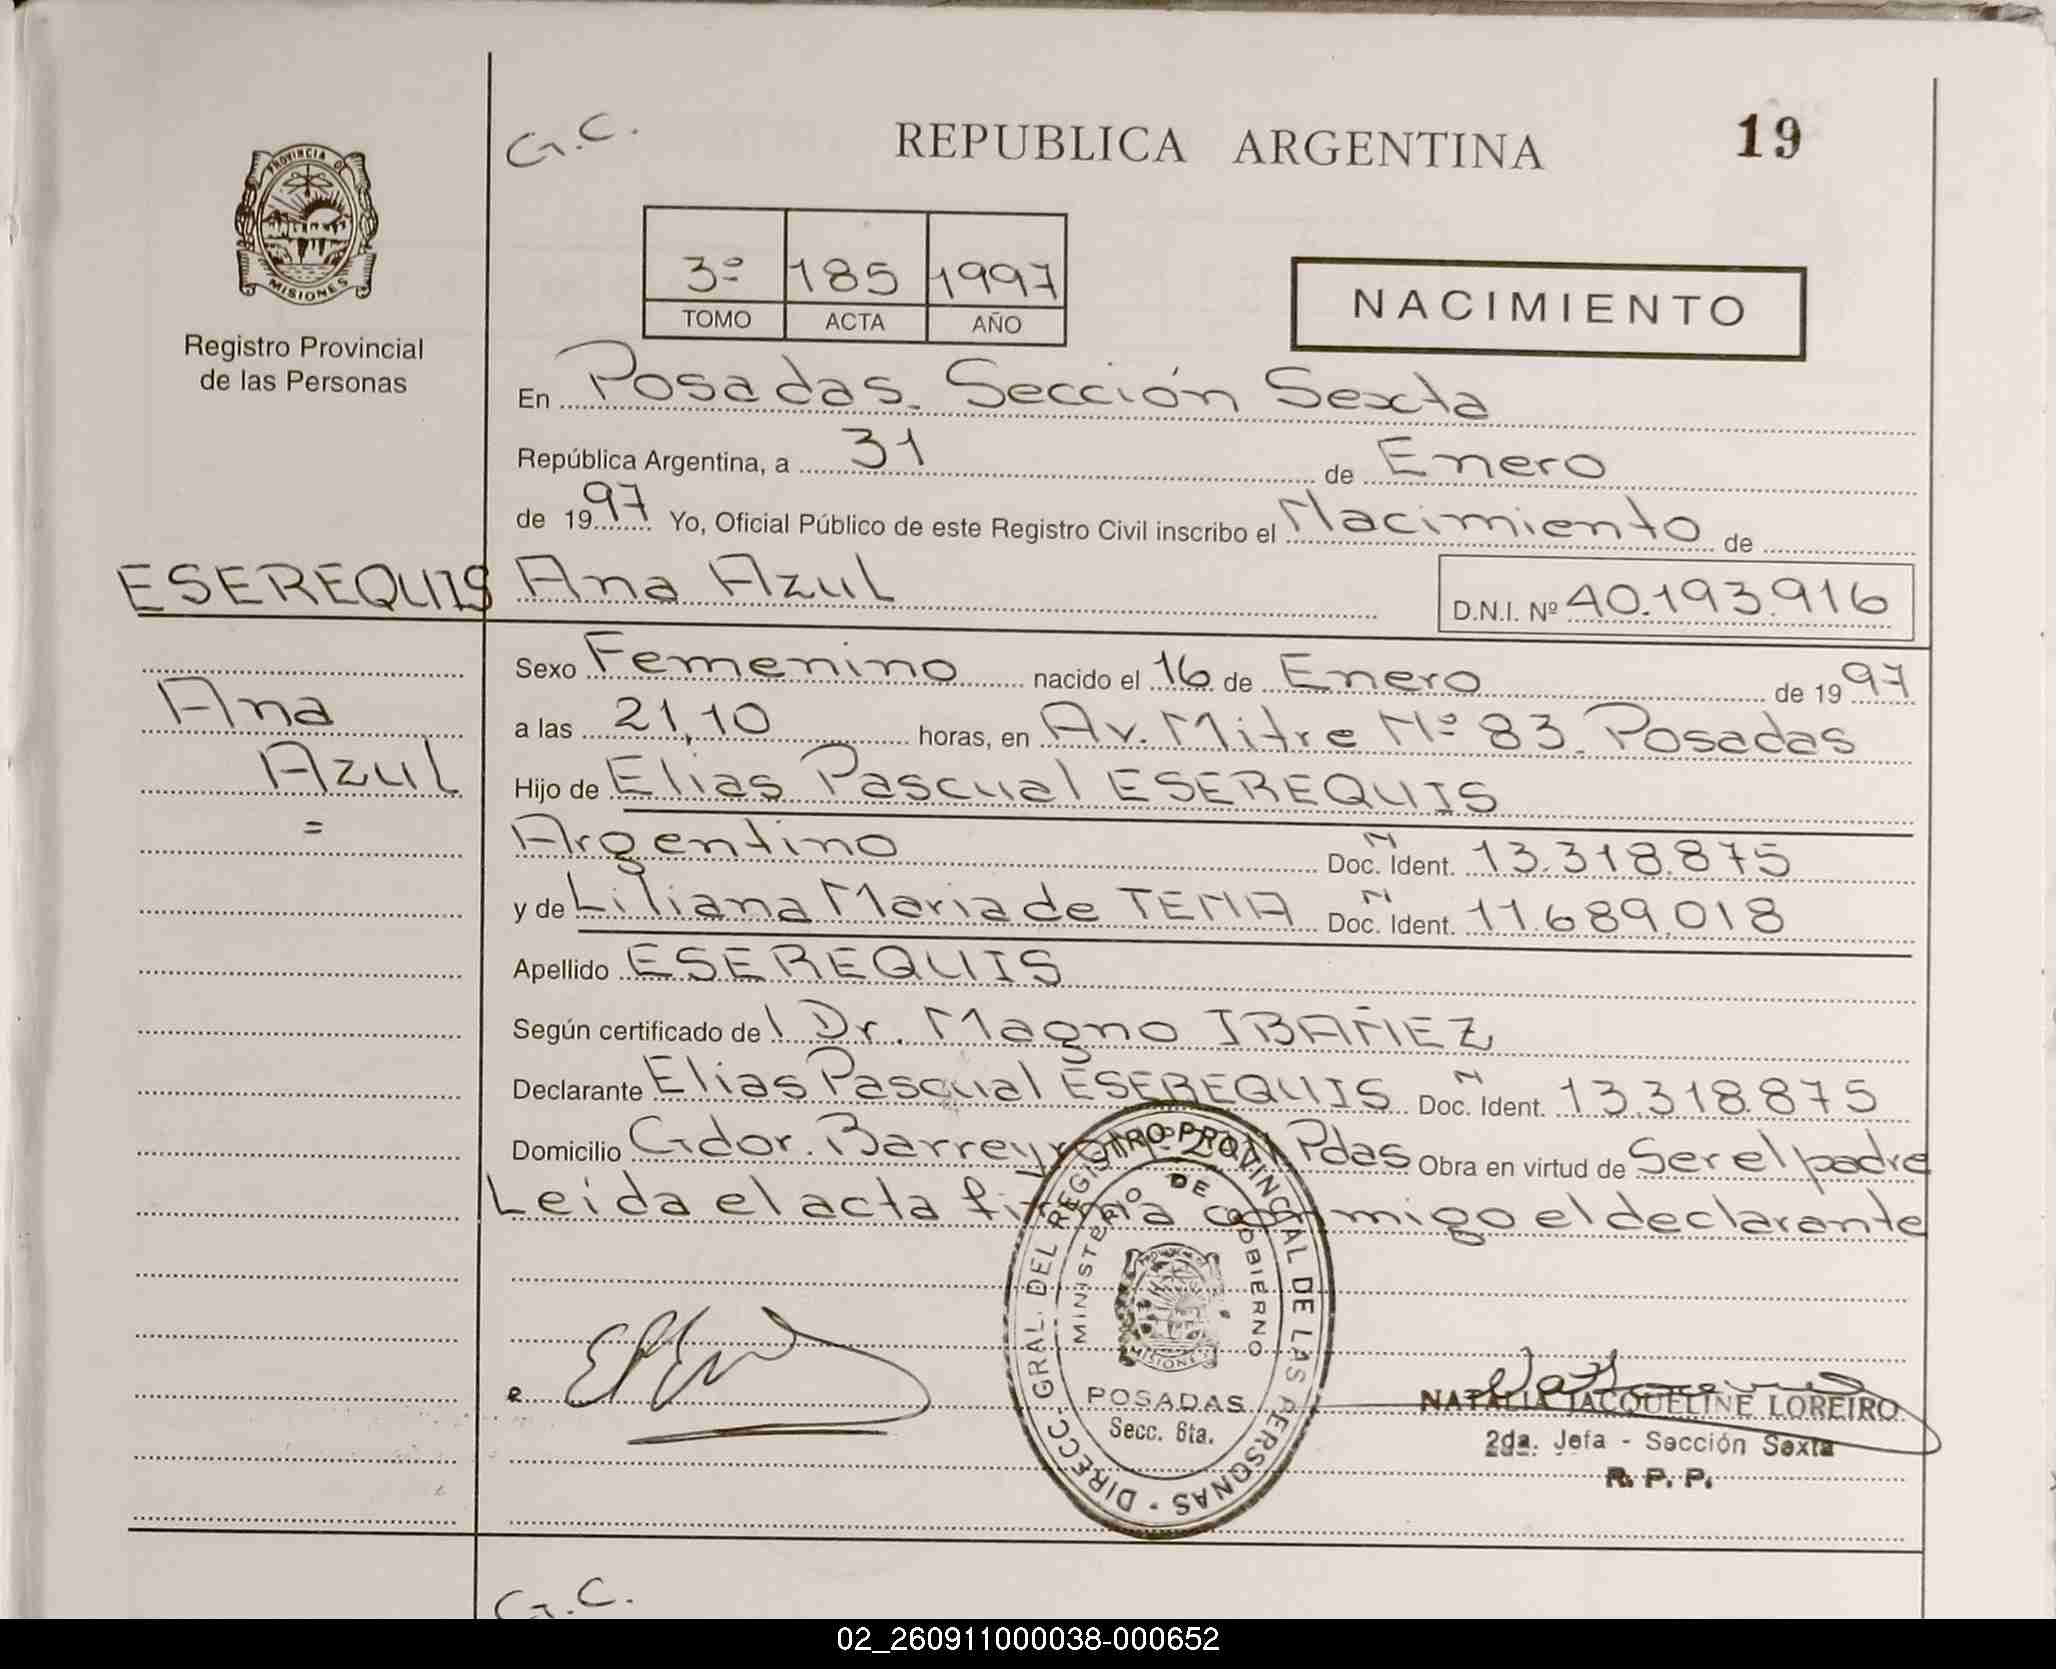 G.C.
REPUBLICA ARGENTINA
19
PROVINCIA DE
MISIONES
Registro Provincial
de las Personas
3º 185 1997
TOMO ACTA AÑO
NACIMIENTO
En Posadas. Sección Sexta
República Argentina, a 31 de Enero
de 1997 Yo, Oficial Público de este Registro Civil inscribo el Nacimiento de
ESEREQUIS Ana Azul D.N.I. Nº 40.193.916
Sexo Femenino nacido el 16 de Enero de 1997
Ana
a las 21,10 horas, en Av. Mitre Nº 83. Posadas
Azul
Hijo de Elias Pascual ESEREQUIS
=
Argentino Doc. N Ident. 13.318.875
y de Liliana Maria de TENA Doc. N Ident. 11.689.018
Apellido ESEREQUIS
Según certificado del Dr. Magno IBAÑEZ
Declarante Elias Pascual ESEREQUIS Doc. N Ident. 13.318.875
Domicilio Gdor. Barreyro Pdas Obra en virtud de Ser el padre
Leida el acta firma conmigo el declarante
DIRECC. GRAL. DEL REGISTRO PROVINCIAL DE LAS PERSONAS
MINISTERIO DE GOBIERNO
MISIONES
POSADAS
Secc. 6ta.
NATALIA JACQUELINE LOREIRO
2da. Jefa - Sección Sexta
R. P. P.
G.C.
02_260911000038-000652